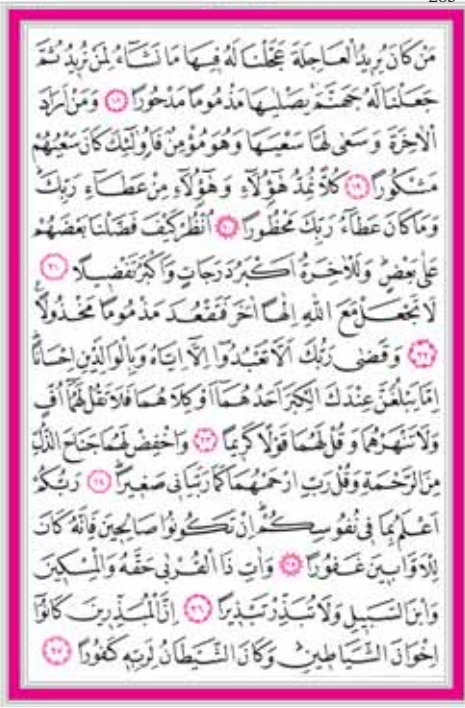 مَنْ كَانَ يُرِيدُ الْعَاجِلَةَ عَجَّلْنَا لَهُ فِيهَا مَا نَشَٓاءُ لِمَنْ نُرِيدُ ثُمَّ
جَعَلْنَا لَهُ جَهَنَّمَۚ يَصْلٰيهَا مَذْمُومًا مَدْحُورًا ﴿١٨﴾ وَمَنْ اَرَادَ
الْاٰخِرَةَ وَسَعٰى لَهَا سَعْيَهَا وَهُوَ مُؤْمِنٌ فَاُو۬لٰٓئِكَ كَانَ سَعْيُهُمْ
مَشْكُورًا ﴿١٩﴾ كُلًّا نُمِدُّ هٰٓؤُ۬لَٓاءِ وَهٰٓؤُ۬لَٓاءِ مِنْ عَطَٓاءِ رَبِّكَۜ
وَمَا كَانَ عَطَٓاءُ رَبِّكَ مَحْظُورًا ﴿٢٠﴾ اُنْظُرْ كَيْفَ فَضَّلْنَا بَعْضَهُمْ
عَلٰى بَعْضٍۜ وَلَلْاٰخِرَةُ اَكْبَرُ دَرَجَاتٍ وَاَكْبَرُ تَفْضِيلًا ﴿٢١﴾
لَا تَجْعَلْ مَعَ اللّٰهِ اِلٰهًا اٰخَرَ فَتَقْعُدَ مَذْمُومًا مَخْذُولًا۟
﴿٢٢﴾ وَقَضٰى رَبُّكَ اَلَّا تَعْبُدُٓوا اِلَّٓا اِيَّاهُ وَبِالْوَالِدَيْنِ اِحْسَانًاۜ
اِمَّا يَبْلُغَنَّ عِنْدَكَ الْكِبَرَ اَحَدُهُمَٓا اَوْ كِلَاهُمَا فَلَا تَقُلْ لَهُمَٓا اُفٍّ
وَلَا تَنْهَرْهُمَا وَقُلْ لَهُمَا قَوْلًا كَرِيمًا ﴿٢٣﴾ وَاخْفِضْ لَهُمَا جَنَاحَ الذُّلِّ
مِنَ الرَّحْمَةِ وَقُلْ رَبِّ ارْحَمْهُمَا كَمَا رَبَّيَانِي صَغِيرًاۜ ﴿٢٤﴾ رَبُّكُمْ
اَعْلَمُ بِمَا فِي نُفُوسِكُمْۜ اِنْ تَكُونُوا صَالِحِينَ فَاِنَّهُ كَانَ
لِلْاَوَّابِينَ غَفُورًا ﴿٢٥﴾ وَاٰتِ ذَا الْقُرْبٰى حَقَّهُ وَالْمِسْكِينَ
وَابْنَ السَّبِيلِ وَلَا تُبَذِّرْ تَبْذِيرًا ﴿٢٦﴾ اِنَّ الْمُبَذِّرِينَ كَانُٓوا
اِخْوَانَ الشَّيَاطِينِۜ وَكَانَ الشَّيْطَانُ لِرَبِّهِ كَفُورًا ﴿٢٧﴾